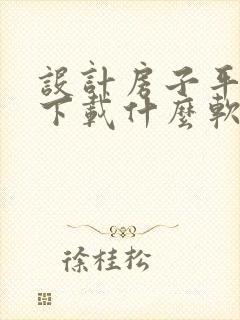 設計房子平
下載什麼軟
徐桂松